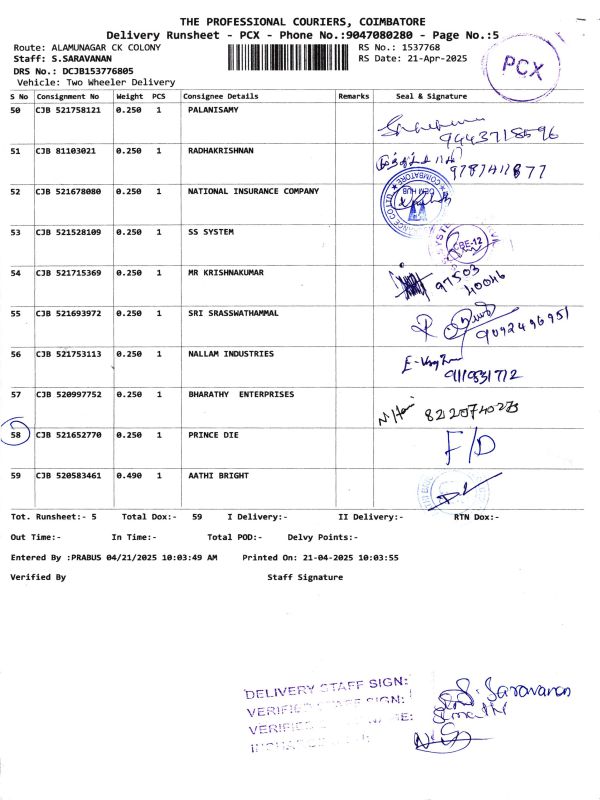 THE PROFESSIONAL COURIERS, COIMBATORE
Delivery Runsheet - PCX - Phone No.:9047080280 - Page No.:5
Route: ALAMUNAGAR CK COLONY
RS No.: 1537768
Staff: S.SARAVANAN
RS Date: 21-Apr-2025
DRS No.: DCJB153776805
PCX
Vehicle: Two Wheeler Delivery
S No Consignment No Weight PCS Consignee Details Remarks Seal & Signature
50 CJB 521758121 0.250 1 PALANISAMY
9443718596
51 CJB 81103021 0.250 1 RADHAKRISHNAN
9787411877
52 CJB 521678080 0.250 1 NATIONAL INSURANCE COMPANY
53 CJB 521528109 0.250 1 SS SYSTEM
CBE-12
54 CJB 521715369 0.250 1 MR KRISHNAKUMAR
97503
40046
55 CJB 521693972 0.250 1 SRI SRASSWATHAMMAL
9092496951
56 CJB 521753113 0.250 1 NALLAM INDUSTRIES
57 CJB 520997752 0.250 1 BHARATHY ENTERPRISES
58 CJB 521652770 0.250 1 PRINCE DIE F/D
59 CJB 520583461 0.490 1 AATHI BRIGHT
Tot. Runsheet:- 5 Total Dox:- 59 I Delivery:- II Delivery:- RTN Dox:-
Out Time:- In Time:- Total POD:- Delvy Points:-
Entered By :PRABUS 04/21/2025 10:03:49 AM Printed On: 21-04-2025 10:03:55
Verified By Staff Signature
DELIVERY STAFF SIGN: S. Saravanan
VERIFIED STAFF SIGN:
VERIFIED